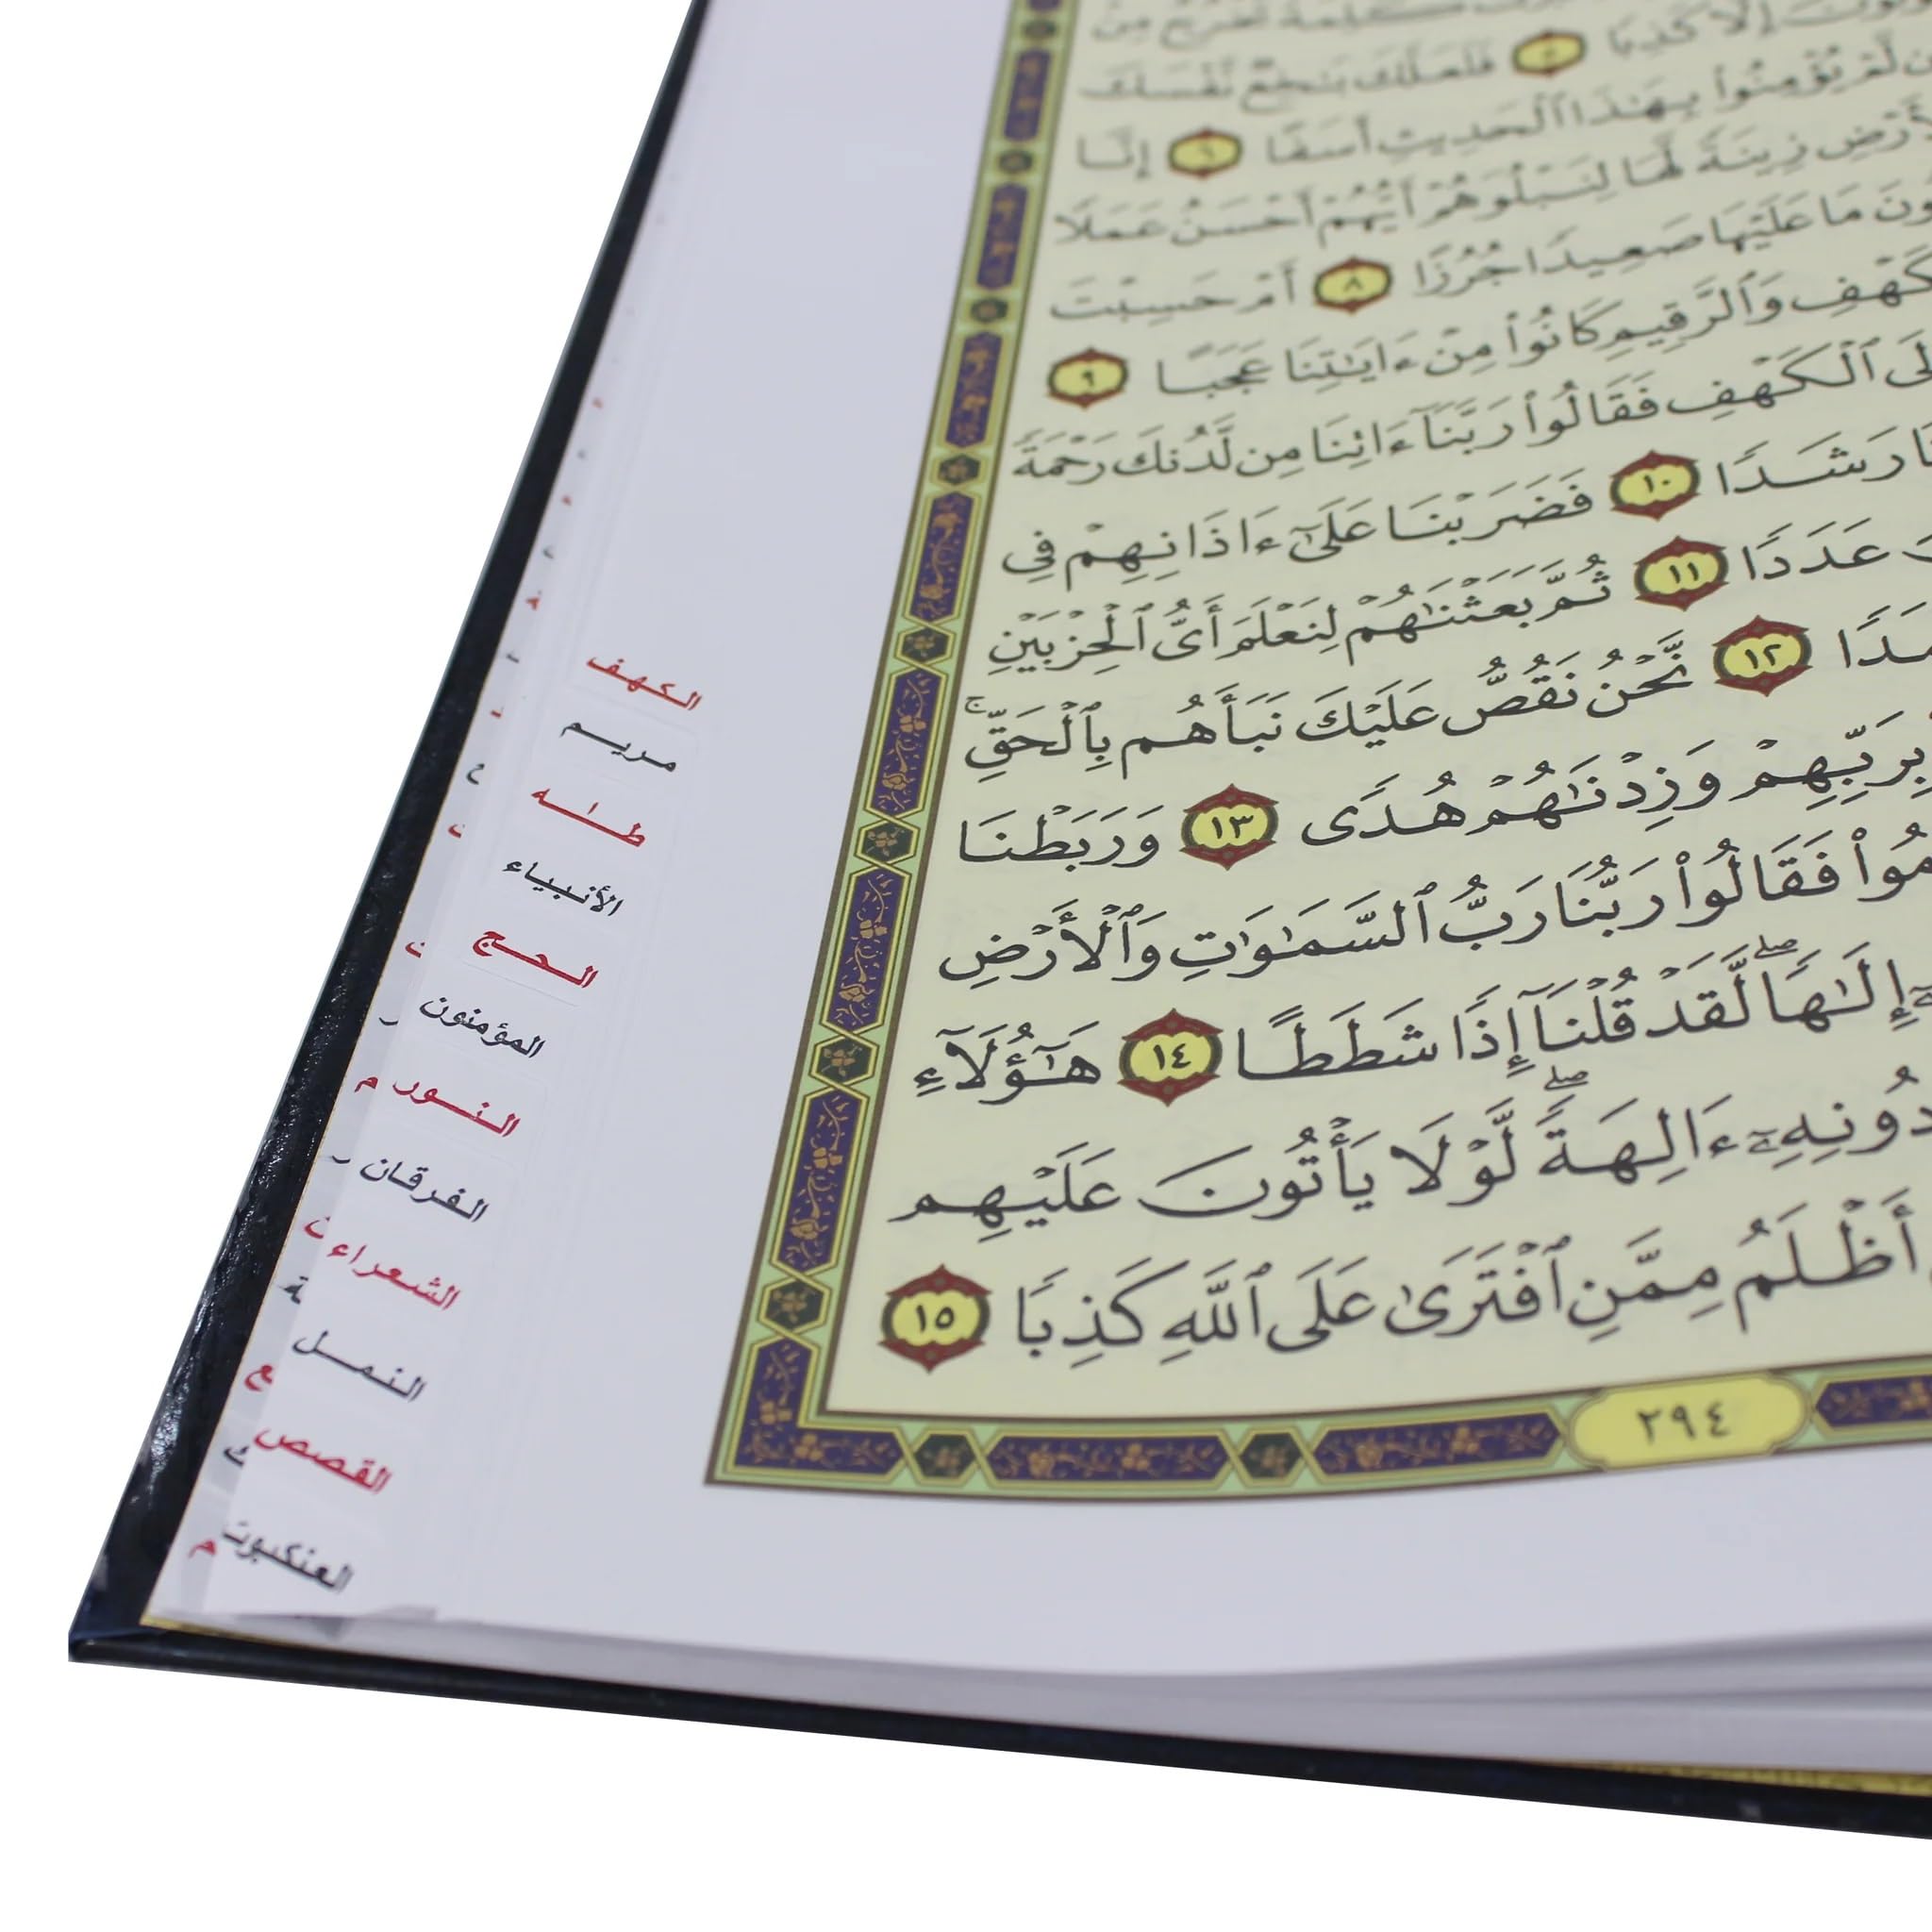 كَلِمَةً تَخْرُجُ مِنْ
إِلَّا كَذِبًا ٥ فَلَعَلَّكَ بَٰخِعٌ نَّفْسَكَ
لَّمْ يُؤْمِنُوا۟ بِهَٰذَا ٱلْحَدِيثِ أَسَفًا ٦ إِنَّا
زِينَةً لَّهَا لِنَبْلُوَهُمْ أَيُّهُمْ أَحْسَنُ عَمَلًا
مَا عَلَيْهَا صَعِيدًا جُرُزًا ٨ أَمْ حَسِبْتَ
وَٱلرَّقِيمِ كَانُوا۟ مِنْ ءَايَٰتِنَا عَجَبًا ٩
ٱلْكَهْفِ فَقَالُوا۟ رَبَّنَآ ءَاتِنَا مِن لَّدُنكَ رَحْمَةً
رَشَدًا ١٠ فَضَرَبْنَا عَلَىٰٓ ءَاذَانِهِمْ فِى
عَدَدًا ١١ ثُمَّ بَعَثْنَٰهُمْ لِنَعْلَمَ أَىُّ ٱلْحِزْبَيْنِ
١٢ نَّحْنُ نَقُصُّ عَلَيْكَ نَبَأَهُم بِٱلْحَقِّ ۚ
بِرَبِّهِمْ وَزِدْنَٰهُمْ هُدًى ١٣ وَرَبَطْنَا
فَقَالُوا۟ رَبُّنَا رَبُّ ٱلسَّمَٰوَٰتِ وَٱلْأَرْضِ
إِلَٰهًا ۖ لَّقَدْ قُلْنَآ إِذًا شَطَطًا ١٤ هَٰٓؤُلَآءِ
دُونِهِۦٓ ءَالِهَةً ۖ لَّوْلَا يَأْتُونَ عَلَيْهِم
أَظْلَمُ مِمَّنِ ٱفْتَرَىٰ عَلَى ٱللَّهِ كَذِبًا ١٥
٢٩٤
الكهف
مريم
طٰه
الأنبياء
الحج
المؤمنون
النور
الفرقان
الشعراء
النمل
القصص
العنكبوت